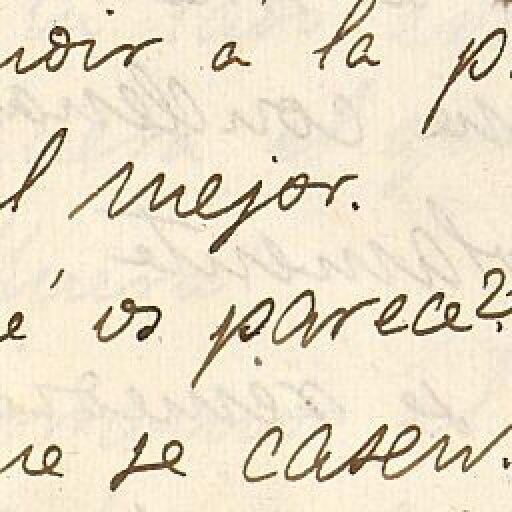 udir a la p
l mejor.
é os parece?
ue se casen.